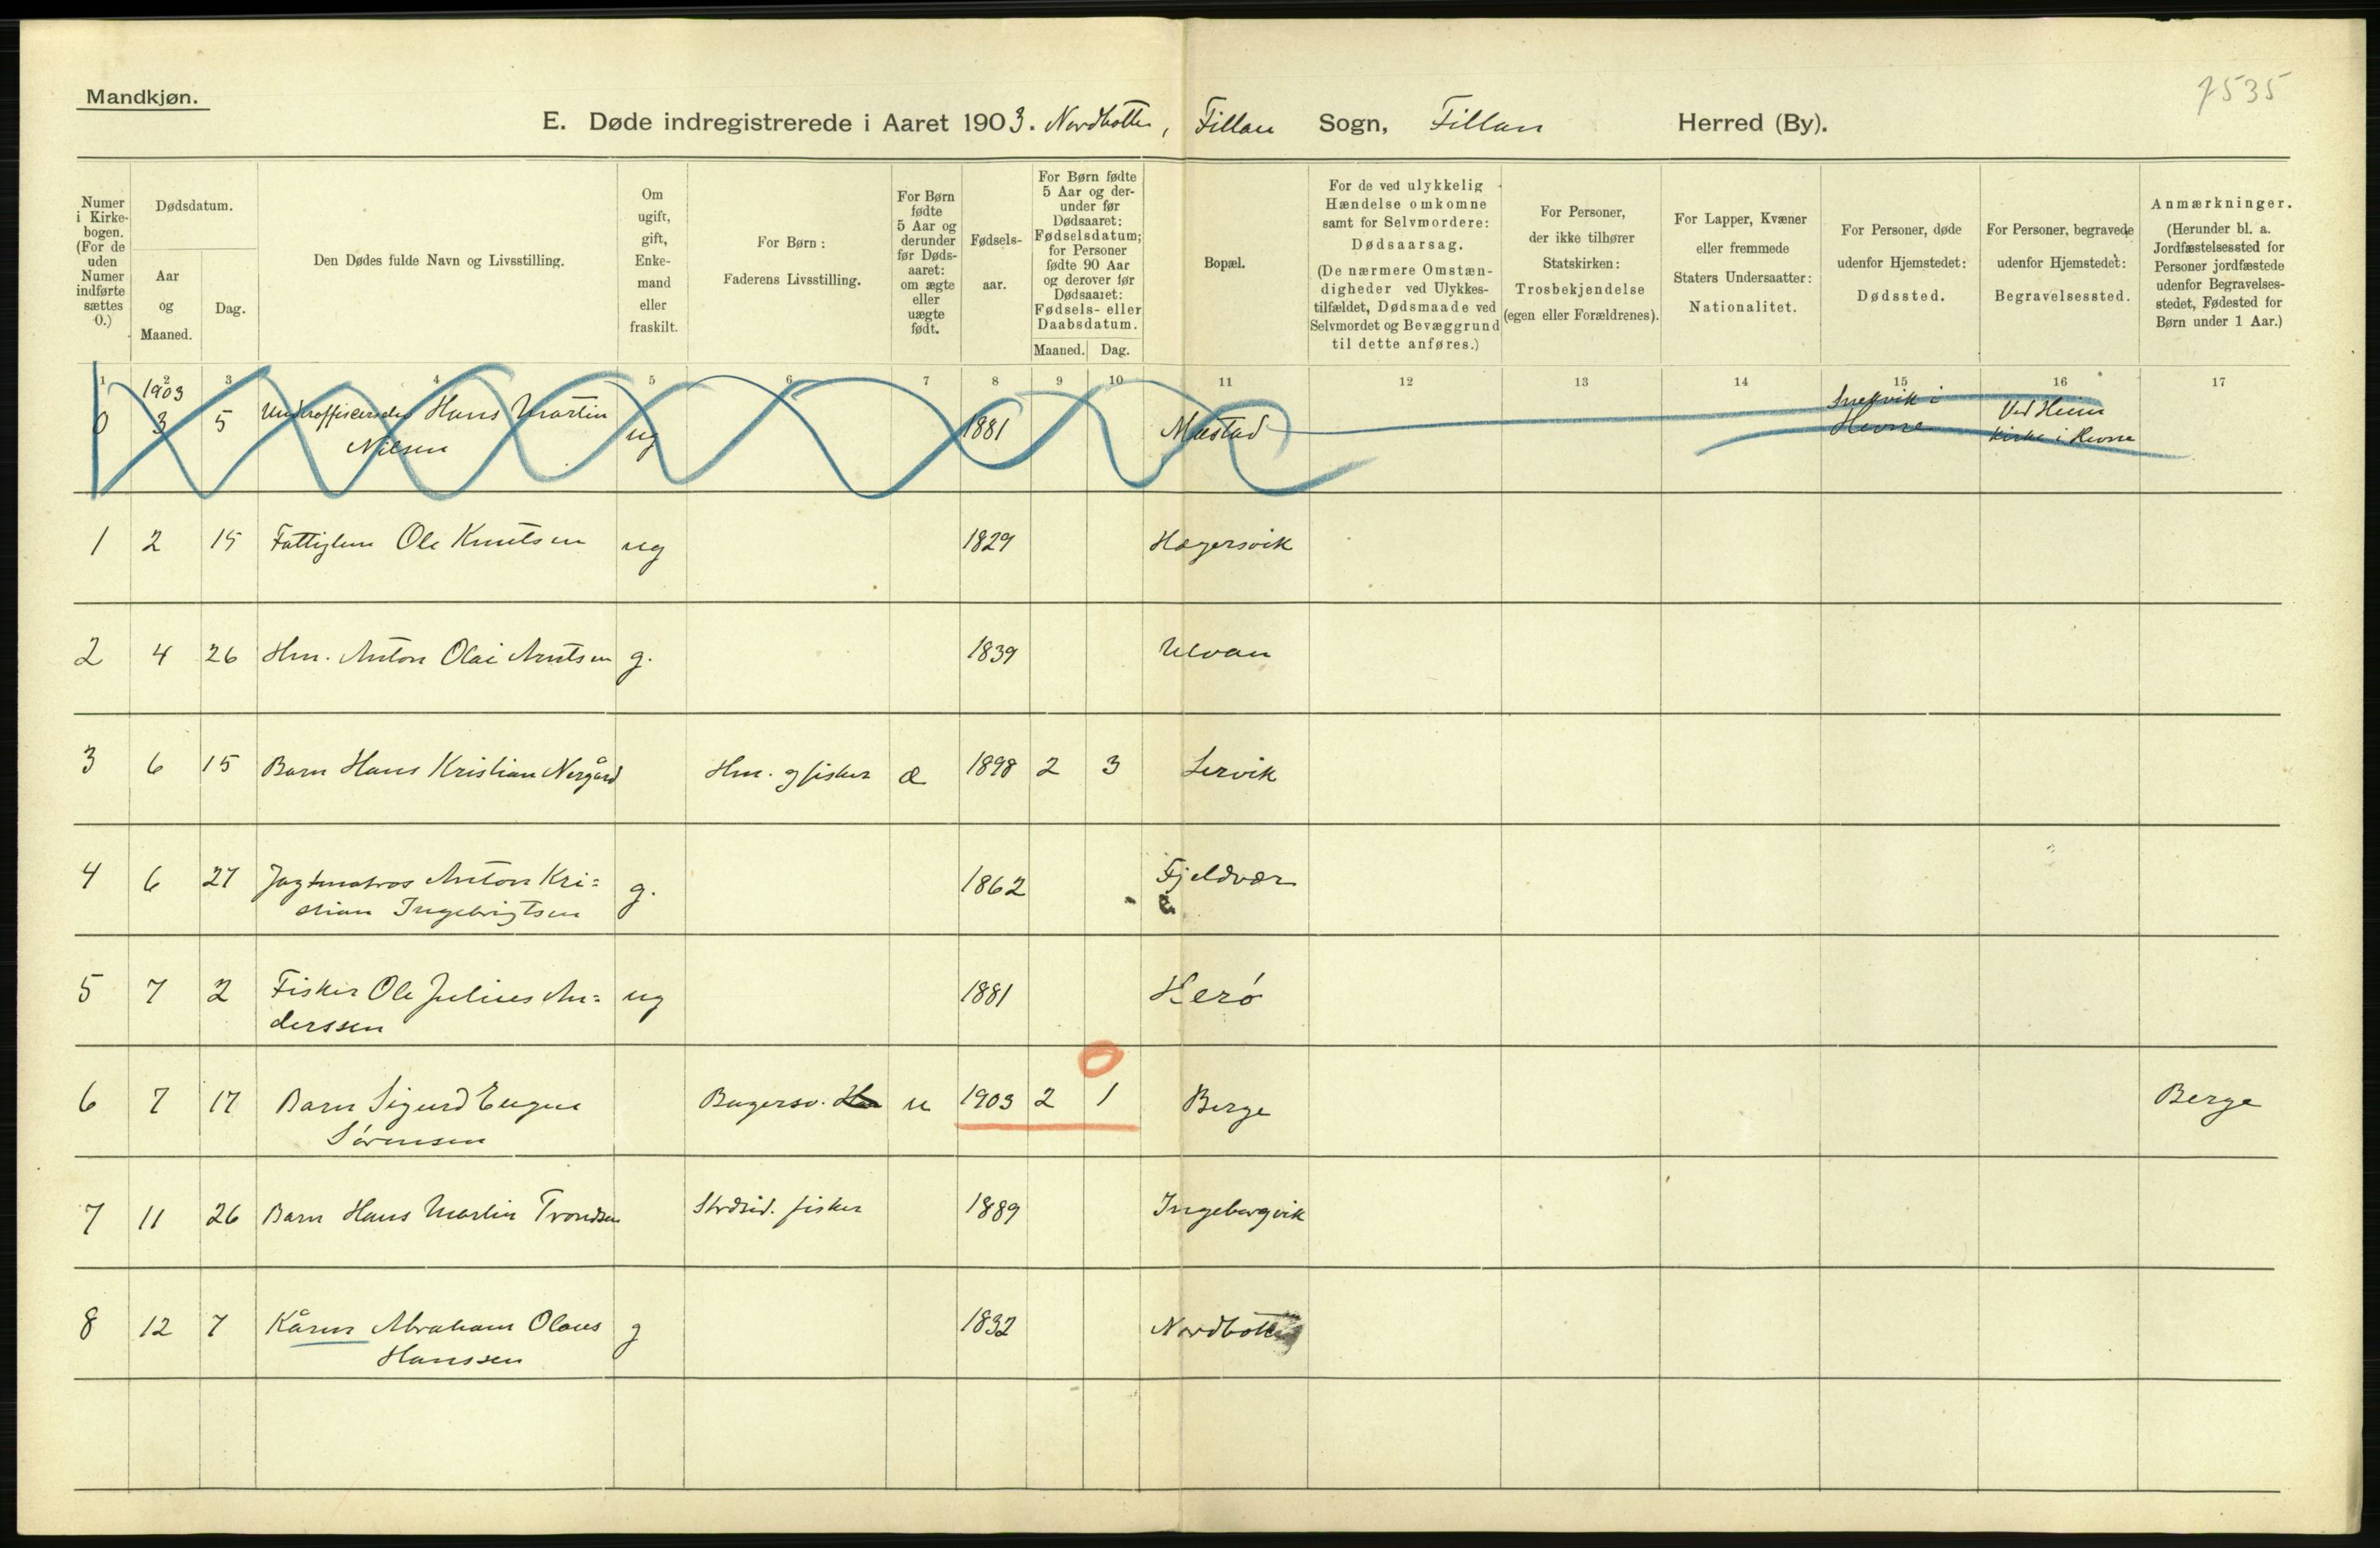 7535
Mandkjøn.
E. Døde indregistrerede i Aaret 1903. Nordbotten, Fillan Sogn, Fillan Herred (By).
Numer i Kirkebogen. (For de uden Numer indførte sættes 0.)
Dødsdatum.
Aar og Maaned.
Dag.
Den Dødes fulde Navn og Livsstilling.
Om ugift, gift, Enkemand eller fraskilt.
For Børn: Faderens Livsstilling.
For Børn fødte 5 Aar og derunder før Dødsaaret: om ægte eller uægte født.
Fødselsaar.
For Børn fødte 5 Aar og derunder før Dødsaaret: Fødselsdatum; for Personer fødte 90 Aar og derover før Dødsaaret: Fødsels- eller Daabsdatum.
Maaned. Dag.
Bopæl.
For de ved ulykkelig Hændelse omkomne samt for Selvmordere: Dødsaarsag. (De nærmere Omstændigheder ved Ulykkestilfældet, Dødsmaade ved Selvmordet og Bevæggrund til dette anføres.)
For Personer, der ikke tilhører Statskirken: Trosbekjendelse (egen eller Forældrenes).
For Lapper, Kvæner eller fremmede Staters Undersaatter: Nationalitet.
For Personer, døde udenfor Hjemstedet: Dødssted.
For Personer, begravede udenfor Hjemstedet: Begravelsessted.
Anmærkninger. (Herunder bl. a. Jordfæstelsessted for Personer jordfæstede udenfor Begravelsesstedet, Fødested for Børn under 1 Aar.)
1 2 3 4 5 6 7 8 9 10 11 12 13 14 15 16 17
1903
0 3 5 Hans Martin Nilsen ug 1881 Mæstad Snekvik i Hevne Ved Heim Kirke i Hevne
1 2 15 Fattiglem Ole Knutsen ug 1829 Hagersvik
2 4 26 Hm. Anton Olai Arntsen g. 1839 Ulvan
3 6 15 Barn Hans Kristian Nergård Hm. og fisker æ 1898 2 3 Lervik
4 6 27 Jagtmatros Anton Kri=
stian Ingebrigtsen g. 1862 Fjeldvær
5 7 2 Fisker Ole Julius An=
derssen ug 1881 Herø
6 7 17 Barn Sigurd Eugen
Sørensen u 1903 2 1 Berge Berge
7 11 26 Barn Hans Martin Trondsen Strdsid. fisker 1889 Ingebergvik
8 12 7 Kårm Abraham Olaus
Hanssen g 1832 Nordbotten